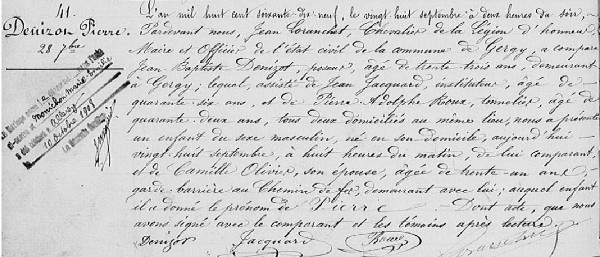 41.
Denizot Pierre.
28 7bre
L'an mil huit cent soixante dix neuf, le vingt huit septembre à deux heures du soir,
Pardevant nous, Jean Cranchet, Chevalier de la Légion d'honneur
Maire et Officier de l'état civil de la commune de Gergy, a comparu
Jean Baptiste Denizot poseur, âgé de trente trois ans, demeurant
à Gergy; lequel, assisté de Jean Jacquard, instituteur, âgé de
quarante six ans, et de Pierre Adolphe Roux, tonnelier, âgé de
quarante deux ans, tous deux domiciliés au même lieu, nous a présenté
un enfant du sexe masculin, né en son domicile, aujourd'hui
vingt huit septembre, à huit heures du matin, de lui comparant,
et de Camille Olivier, son épouse, âgée de trente un ans,
garde barrière au Chemin de fer, demeurant avec lui; auquel enfant
il a donné le prénom de Pierre. Dont acte, que nous
avons signé avec le comparant et les témoins après lecture
Denizot Jacquard Roux